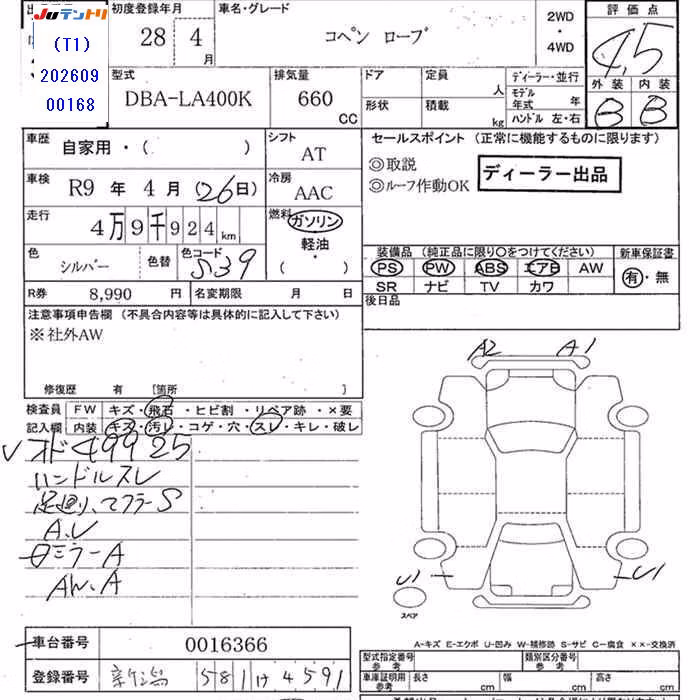 JUテントリ
(T1)
202609
00168
初度登録年月
28 年 4 月
車名・グレード
コペン ローブ
2WD
・
4WD
評価点
4.5
外装 内装
B B
型式
DBA-LA400K
排気量
660 CC
ドア
形状
定員 人
積載 kg
ディーラー・並行
モデル年式 年
ハンドル 左・右
車歴
自家用・( )
シフト
AT
車検
R9 年 4 月 (26日)
冷房
AAC
走行
4万9千924km
燃料
ガソリン
軽油・
( )
色
シルバー
色替
色コード
S39
R券 8,990 円
名変期限 月 日
セールスポイント (正常に機能するものに限ります)
◎取説
◎ルーフ作動OK
ディーラー出品
装備品 (純正品に限り○をつけてください)
PS PW ABS エアB AW
SR ナビ TV カワ
新車保証書
有・無
後日品
注意事項申告欄 (不具合内容等は具体的に記入して下さい)
※社外AW
修復歴 有 [箇所 ]
検査員 FW キズ・飛石・ヒビ割・リペア跡・×要
記入欄 内装 キズ・汚レ・コゲ・穴・スレ・キレ・破レ
オド49925
ハンドルスレ
足廻り、マフラーS
A.U
ミラーA
AW.A
A2 A1
U1 U1
スペア
A-キズ E-エクボ U-凹み W-補修跡 S-サビ C-腐食 ××-交換済
車台番号 0016366
登録番号 新潟 581 け 4591
型式指定番号 参考
類別区分番号 参考
車庫証明用 参考
長さ cm 幅 cm 高さ cm